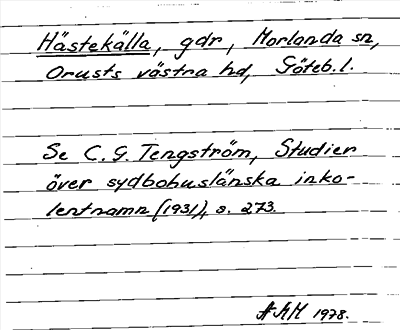 Hästekälla, gdr, Morlanda sn,
Orusts västra hd, Göteb. l.
Se C. G. Tengström, Studier
över sydbohuslänska inko-
lentnamn (1931), s. 273.
AMH 1978.